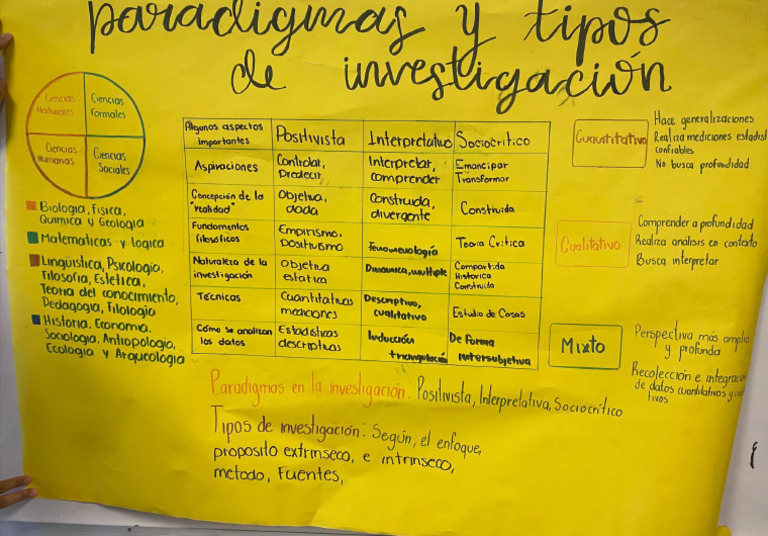 paradigmas y tipos
de investigación
Ciencias
Naturales
Ciencias
Formales
Ciencias
Humanas
Ciencias
Sociales
Biologia, Fisica,
Quimica y Geologia
Matematicas y logica
Lingüistica, Psicologio,
Filosofia, Estetica,
Teoria del conocimiento,
Pedagogia, Filologia
Historia, Economia,
Sociologia, Antropologia,
Ecologia y Arqueologia
Algunos aspectos
importantes
Positivista
Interpretativo
Sociocritico
Aspiraciones
Controlar,
Predecir
Interpretar,
comprender
Emancipar
Transformar
Concepción de la
"realidad"
Objetiva,
dada
Construida,
divergente
Construida
Fundamentos
filosóficos
Empirismo,
positivismo
Fenomenología
Teoria Critica
Naturaleza de la
investigación
Objetiva
estatica
Dinamica, multiple
Compartida
Historica
Construida
Técnicas
Cuantitativas
mediciones
Descriptivo,
cualitativo
Estudio de Casos
Cómo se analizan
los datos
Estadisticas
descriptivas
Inducción
triangulación
De forma
intersubjetiva
Cuantitativo
Hace generalizaciones
Realiza mediciones estadist
confiables
No busca profundidad
Cualitativo
Comprender a profundidad
Realiza análisis en contexto
Busca interpretar
Mixto
Perspectiva más amplia
y profunda
Recolección e integración
de datos cuantitativos y
tivos
Paradigmas en la investigación: Positivista, Interpretativa, Sociocrítico
Tipos de investigación: Según, el enfoque,
proposito extrinseco, e intrinseco,
metodo, Fuentes,